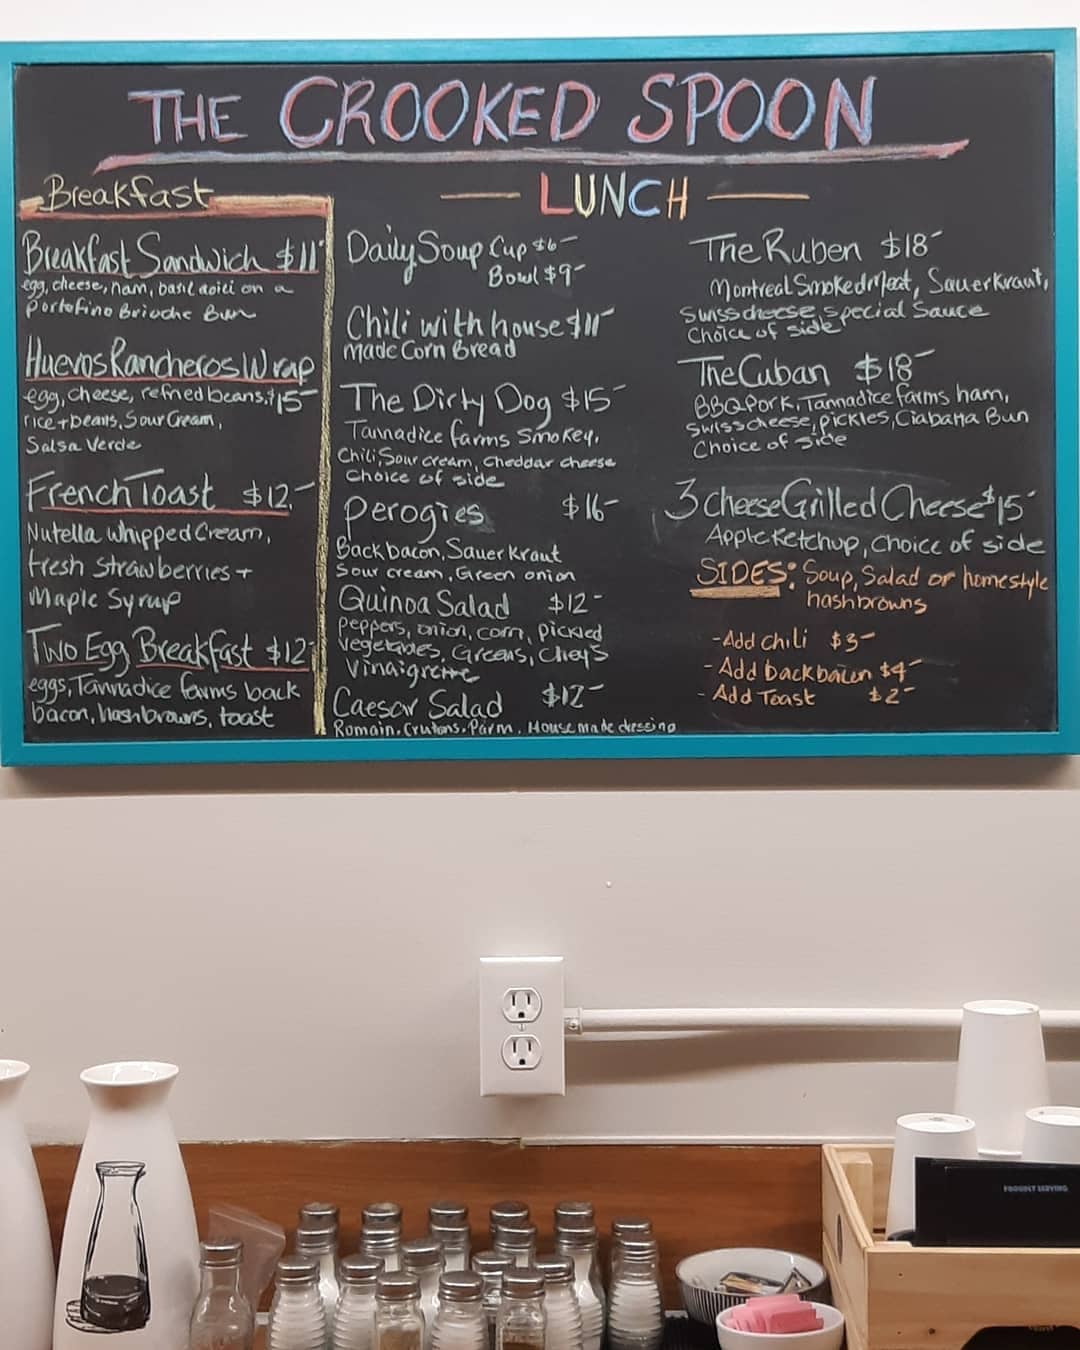 THE CROOKED SPOON
Breakfast
Breakfast Sandwich $11
egg, cheese, ham, basil aoili on a
Portofino Brioche Bun
Huevos Rancheros Wrap
egg, cheese, refried beans, $15
rice + beans, Sour Cream,
Salsa Verde
French Toast $12
Nutella whipped Cream,
fresh strawberries +
Maple Syrup
Two Egg Breakfast $12
eggs, Tannadice farms back
bacon, hashbrowns, toast
LUNCH
Daily Soup Cup $6
Bowl $9
Chili with house $11
made Corn Bread
The Dirty Dog $15
Tannadice farms Smokey,
Chili, Sour cream, Cheddar cheese
Choice of side
Perogies $16
Back bacon, Sauer Kraut
Sour cream, Green onion
Quinoa Salad $12
Peppers, onion, corn, pickled
vegetables, Greens, Chef's
Vinaigrette
Caesar Salad $12
Romain, Crutons, Parm, House made dressing
The Ruben $18
Montreal Smoked Meat, Sauer Kraut,
Swiss cheese, special Sauce
Choice of side
The Cuban $18
BBQ Pork, Tannadice farms ham,
Swiss cheese, pickles, Ciabatta Bun
Choice of side
3 cheese Grilled Cheese $15
Apple Ketchup, Choice of side
SIDES: Soup, Salad or homestyle
hashbrowns
- Add chili $3
- Add back bacon $4
- Add Toast $2
PROUDLY SERVING